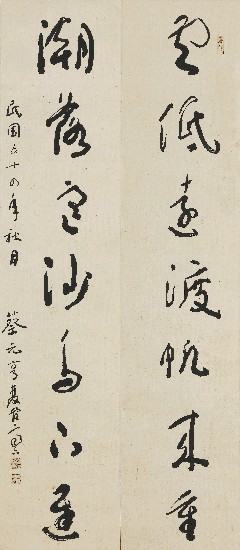 雲低遠渡帆來重
潮落寒沙鳥下遲
民國六十四年秋日 蔡元亨